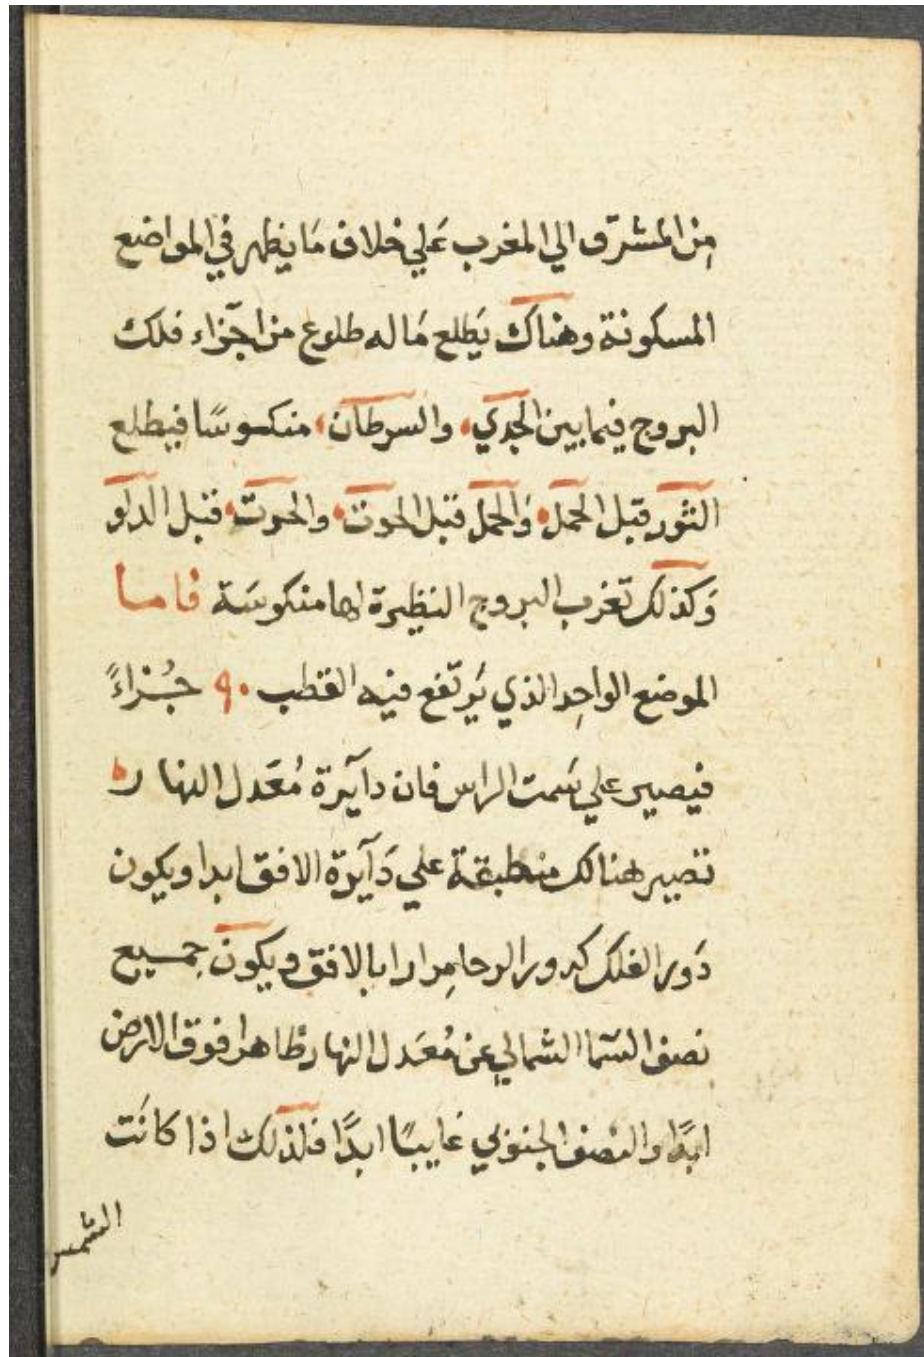 مِن المَشرق الي المغرب عَلي خلاف مَا يظهر في المواضع
المسكونة وهناك يَطلع مَا له طلوع من اجزاء فلك
البروج فيما بين الجدي، والسرطان، منكوسًا فيطلع
الثور قبل الحمل، وَالحمل قبل الحوت، والحوت، قبل الدلو
وَكذلك تغرب البروج النظيرة لها منكوسَة فاما
الموضع الواحِد الذي يَرتفع فيه القطب ٩٠ جُزاءً
فيصير علي سَمت الراس فان دآيرة مُعَدل النهار
تصير هنالك منطبقة علي دَآيرة الافق ابدا ويكون
دَور الفلك كدور الرحا مِرارا بالافق ويكون جميع
نصف السَما الشمالي عن مُعَدل النهار ظاهرا فوق الارض
ابدًا والنصف الجنوبي غايبًا ابدًا فلذلك اذا كانَت
الشمس